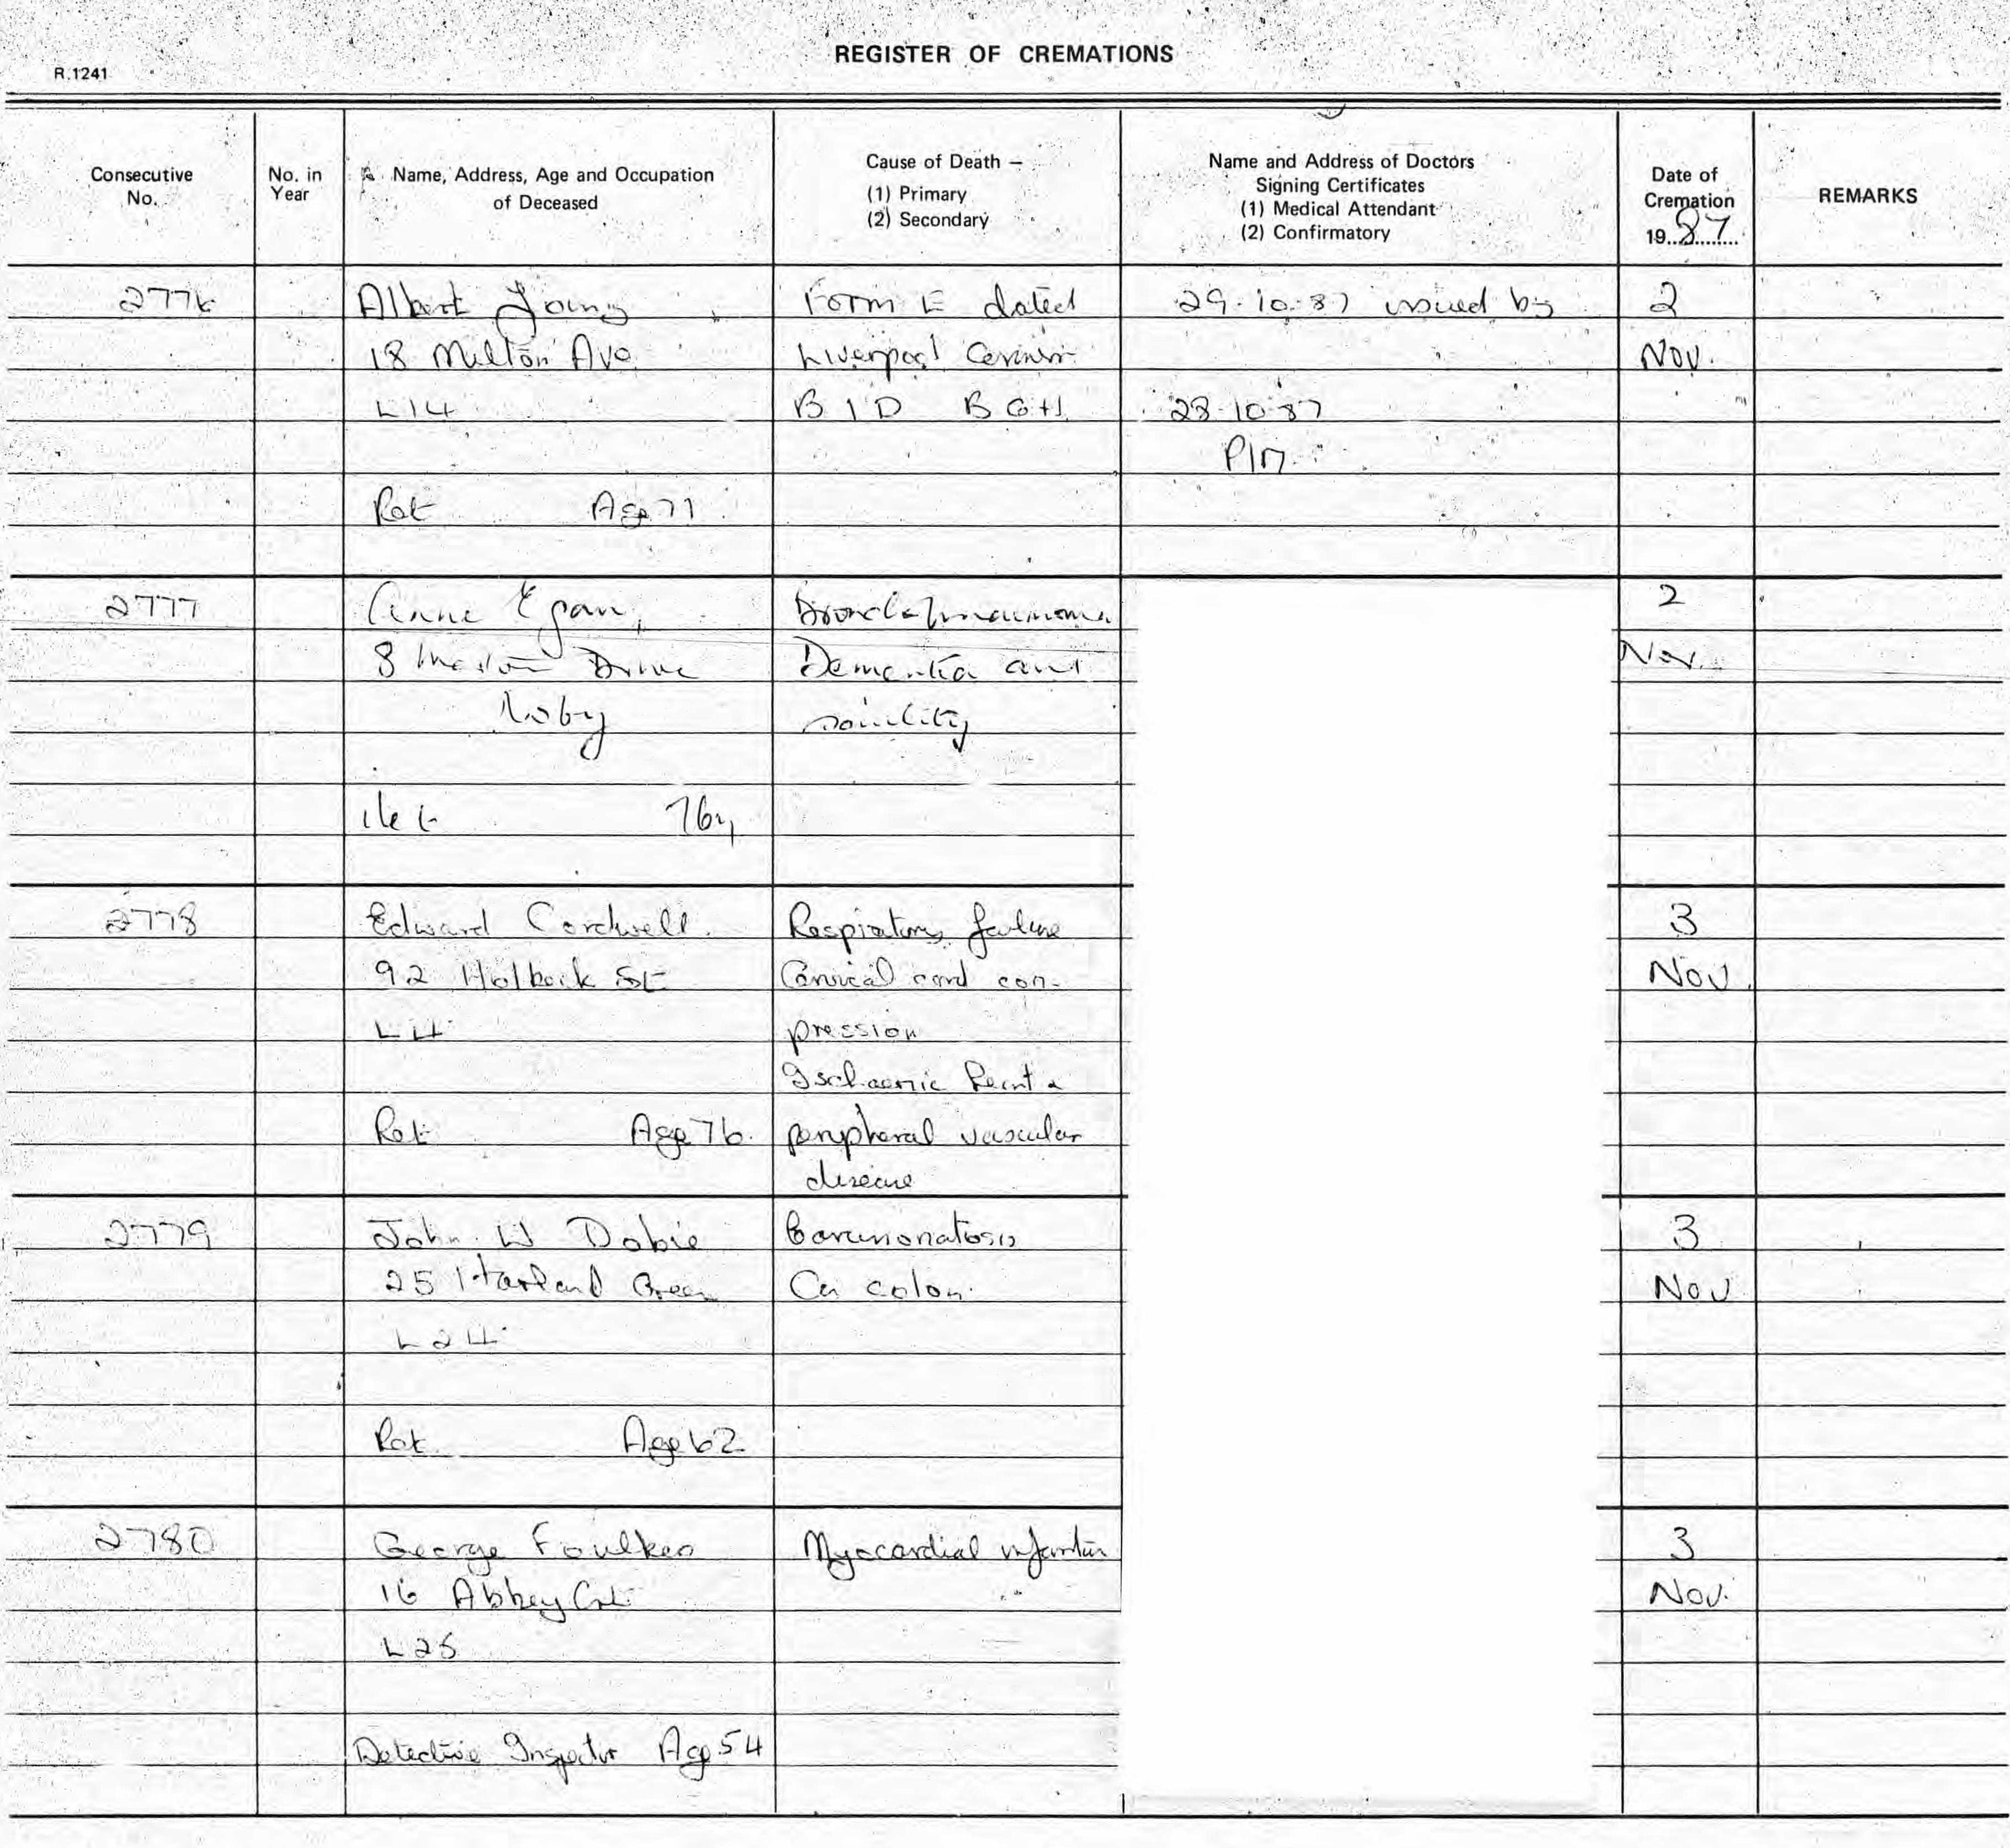 REGISTER OF CREMATIONS
R.1241
Consecutive No.
No. in Year
Name, Address, Age and Occupation of Deceased
Cause of Death –
(1) Primary
(2) Secondary
Name and Address of Doctors
Signing Certificates
(1) Medical Attendant
(2) Confirmatory
Date of Cremation
1987
REMARKS
2776 Albert Young Form E dated 29-10-87 issued by 2
18 Milton Ave Liverpool Coroner Nov.
L14 B I D B G H 28-10-87
P/M
Ret Age 71
2777 Anne Egan, Bronchopneumonia 2
8 Drive Dementia and Nov.
Roby senility
Ret 76y
2778 Edward Cordwell. Respiratory failure 3
92 Holbeck St Cervical cord com- Nov.
L4 pression
Ischaemic heart &
Ret Age 76. peripheral vascular
disease
2779 John W Dobie Carcinonatosis 3
25 Harland Green Ca colon. Nov
L24
Ret Age 62
2780 George Foulkes Myocardial infarction 3
16 Abbey Crt Nov.
L25
Detective Inspector Age 54